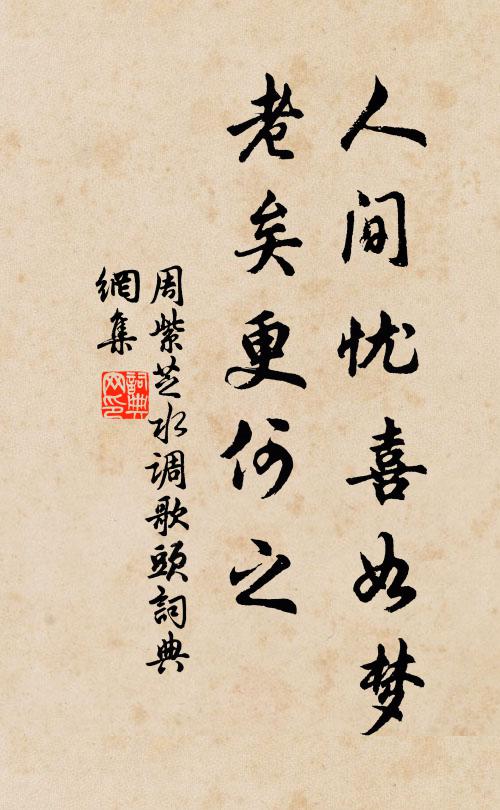 人间忧喜如梦
老矣更何之
周紫芝水调歌頭詞典
網集
詞典
网印